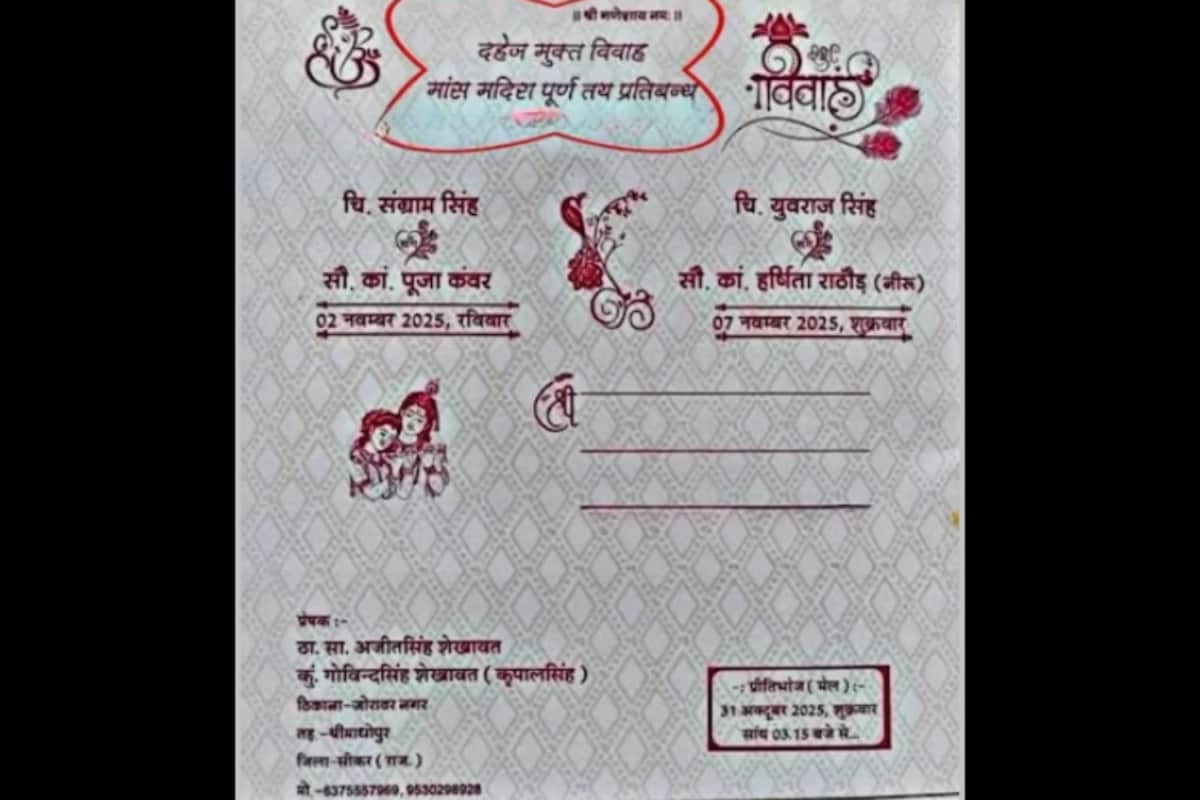 ॥ श्री गणेशाय नमः ॥
दहेज मुक्त विवाह
मांस मदिरा पूर्ण तय प्रतिबन्ध
शुभ
विवाह
चि. संग्राम सिंह
सौ. कां. पूजा कंवर
02 नवम्बर 2025, रविवार
चि. युवराज सिंह
सौ. कां. हर्षिता राठौड़ (नीरू)
07 नवम्बर 2025, शुक्रवार
श्री
प्रेषक :-
ठा. सा. अजीतसिंह शेखावत
कुं. गोविन्दसिंह शेखावत ( कृपालसिंह )
ठिकाना-जोरावर नगर
तह -श्रीमाधोपुर
जिला-सीकर ( राज. )
मो.-6375557969, 9530298928
-: प्रीतिभोज ( मेल ) :-
31 अक्टूबर 2025, शुक्रवार
सांय 03.15 बजे से...